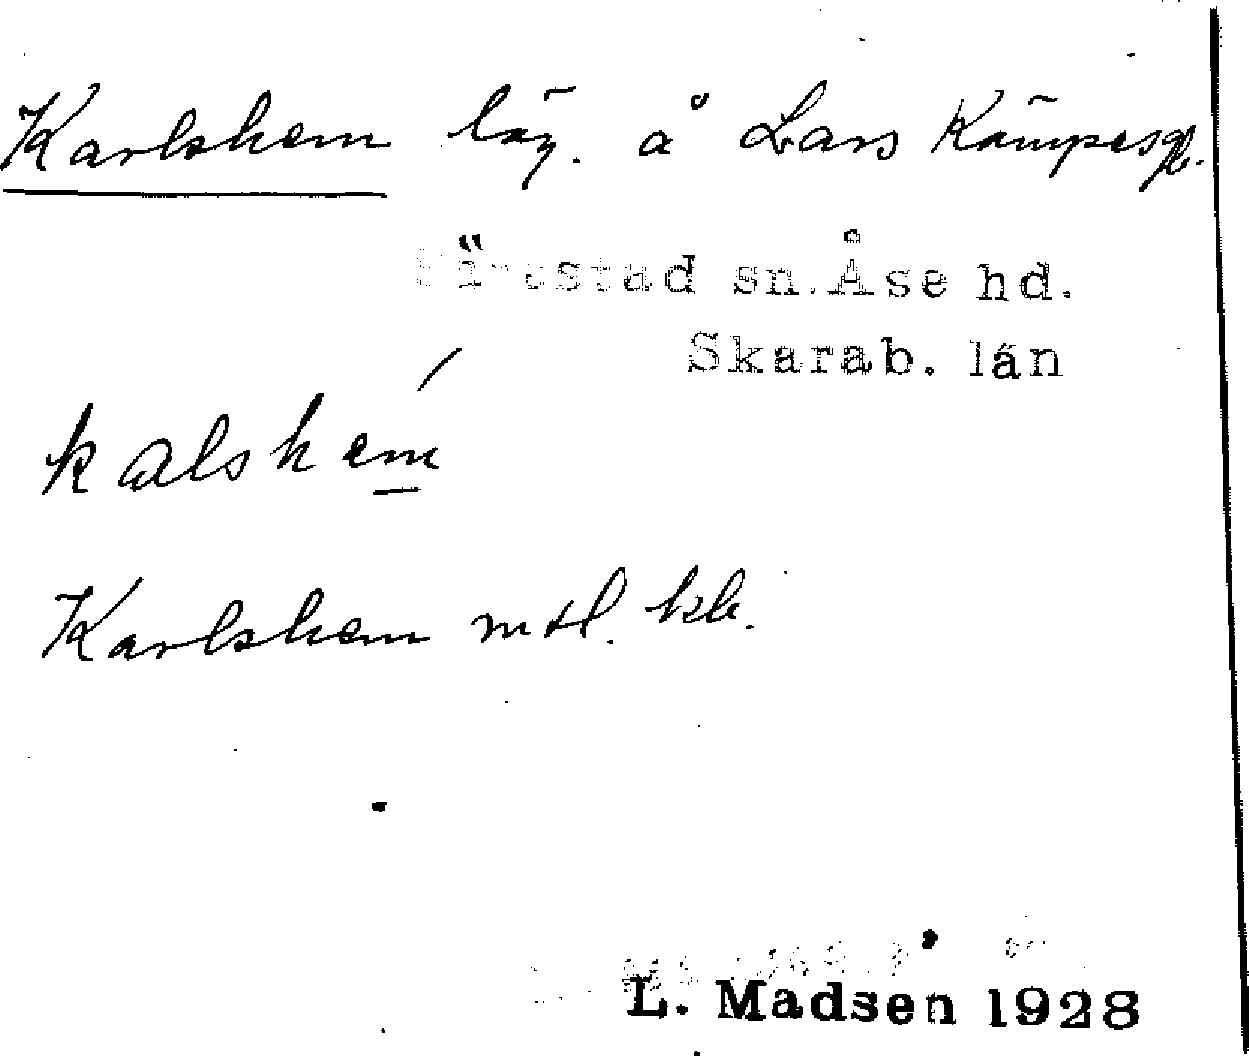 Karlshem läg. å Lars Kämpesg.
Särestad sn. Åse hd.
Skarab. län
kalshem
Karlshem mtl. kb.
L. Madsen 1928